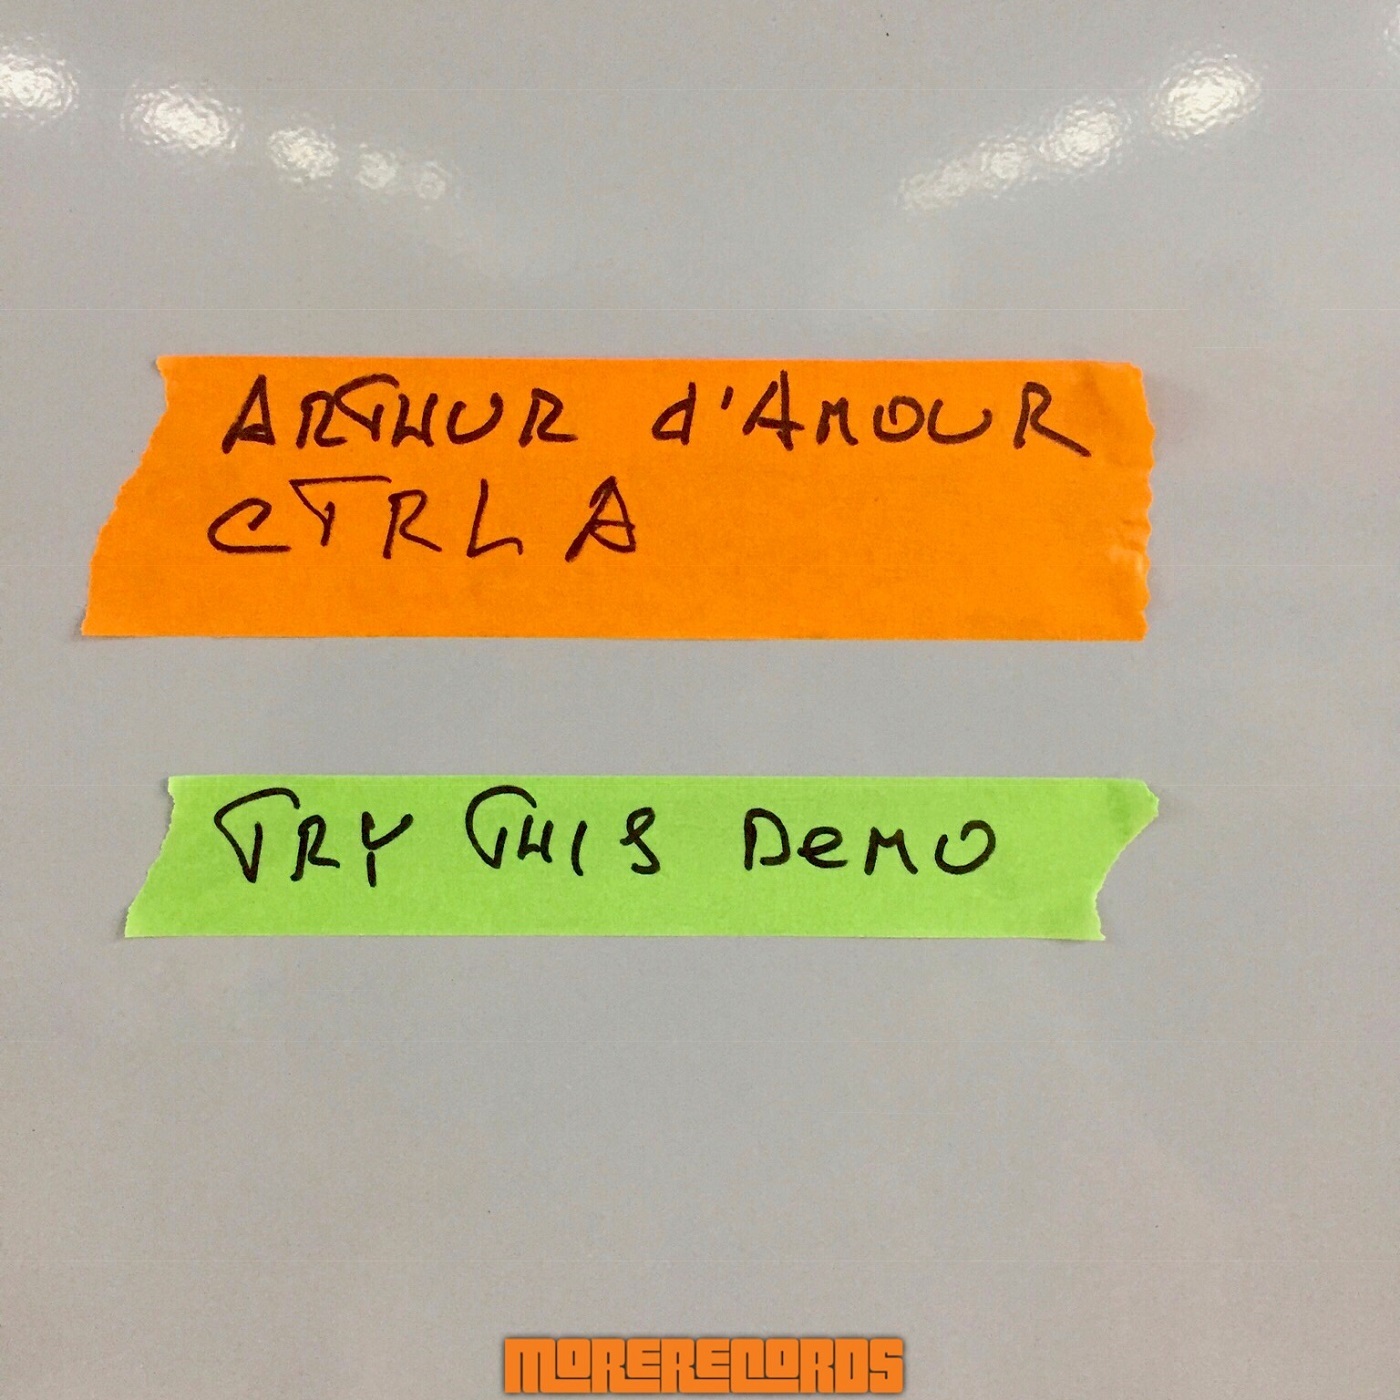 ARTHUR d'AMOUR
CTRL A
TRY THIS DeMO
MORERECORDS